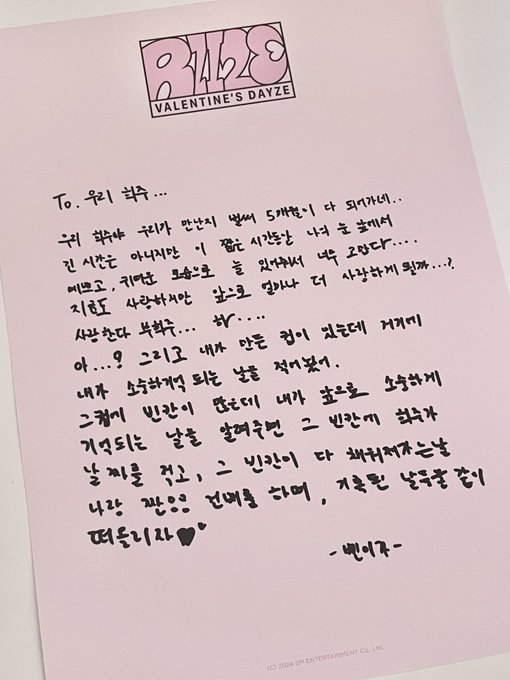 RIIZE
VALENTINE'S DAYZE
To. 우리 희주...
우리 희주야 우리가 만난지 벌써 5개월이 다 되어가네..
긴 시간은 아니지만 이 짧은 시간동안 나의 눈 앞에서
예쁘고, 귀여운 모습으로 늘 있어줘서 너무 고맙다....
지금도 사랑하지만 앞으로 얼마나 더 사랑하게 될까...?
사랑한다 부희주... 하....
아...? 그리고 내가 만든 컵이 있는데 거기에
내가 소중하게 기억 되는 날을 적어놨어.
그컵에 빈칸이 많은데 내가 앞으로 소중하게
기억되는 날을 알려주면 그 빈칸에 희주가
날짜를 적고, 그 빈칸이 다 채워져가는날
나랑 짠 건배를 하며, 기록된 날들을 같이
떠들리자
(C) 2024 SM ENTERTAINMENT Co., Ltd